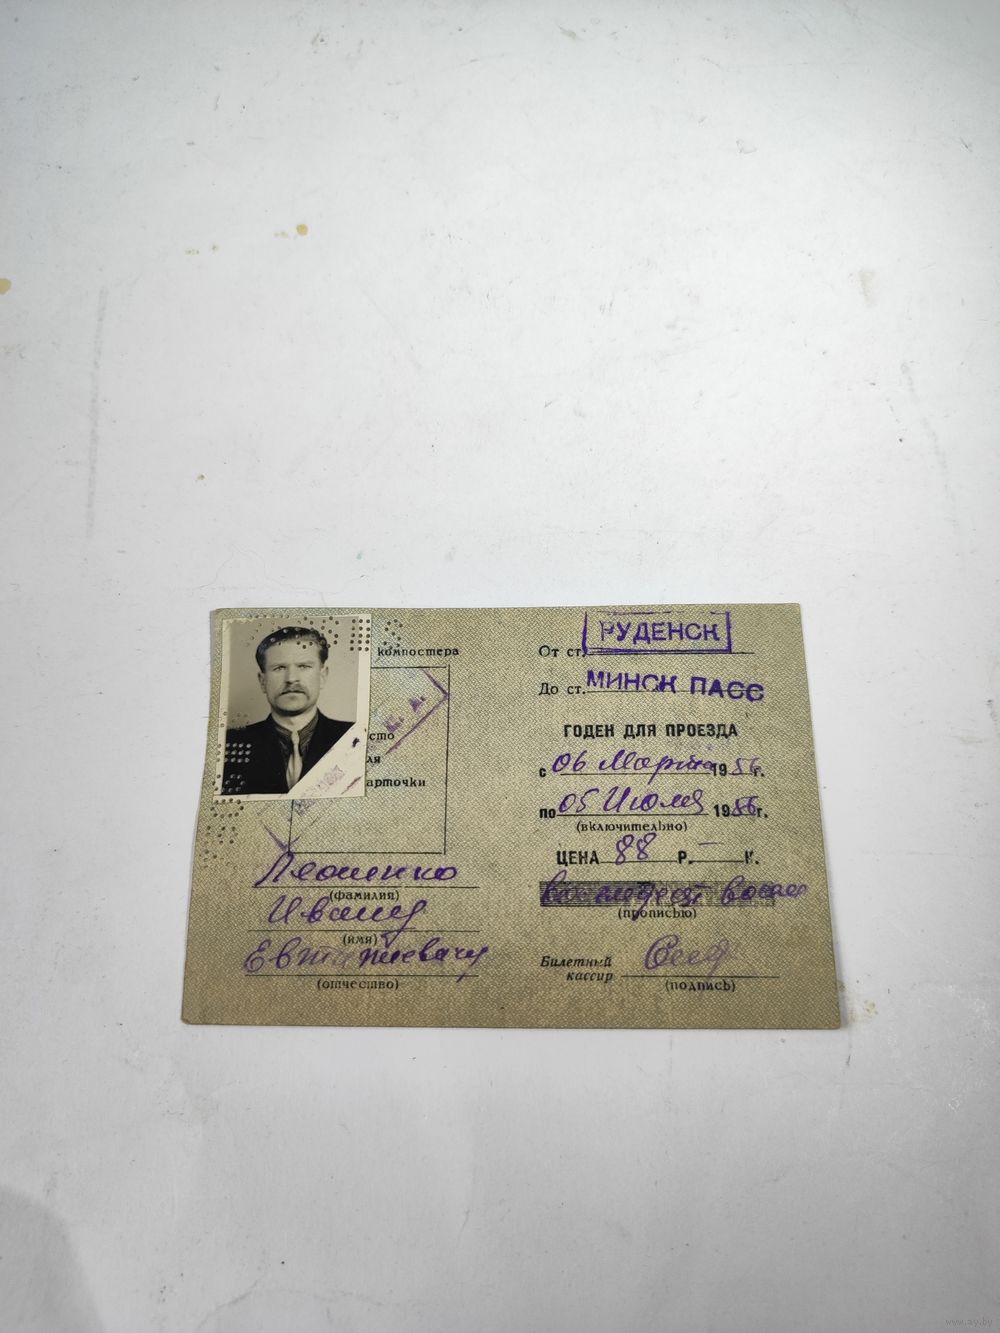 компостера
сто
ля
арточки
Ивану
(фамилия)
(имя)
(отчество)
От ст. РУДЕНСК
До ст. МИНСК ПАСС
ГОДЕН ДЛЯ ПРОЕЗДА
с 06 Марта 1956 г.
по 05 Июля 1956 г.
(включительно)
ЦЕНА 88 Р. — К.
восемьдесят восемь
(прописью)
Билетный
кассир
(подпись)
www.ay.by